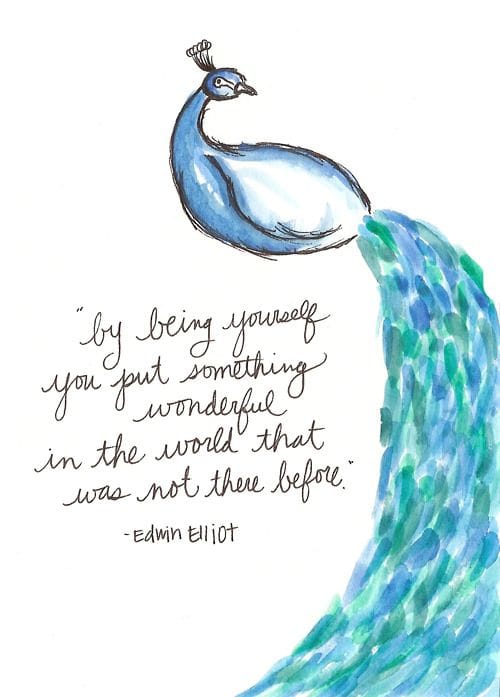 "by being yourself
you put something
wonderful
in the world that
was not there before."
-Edwin Elliot